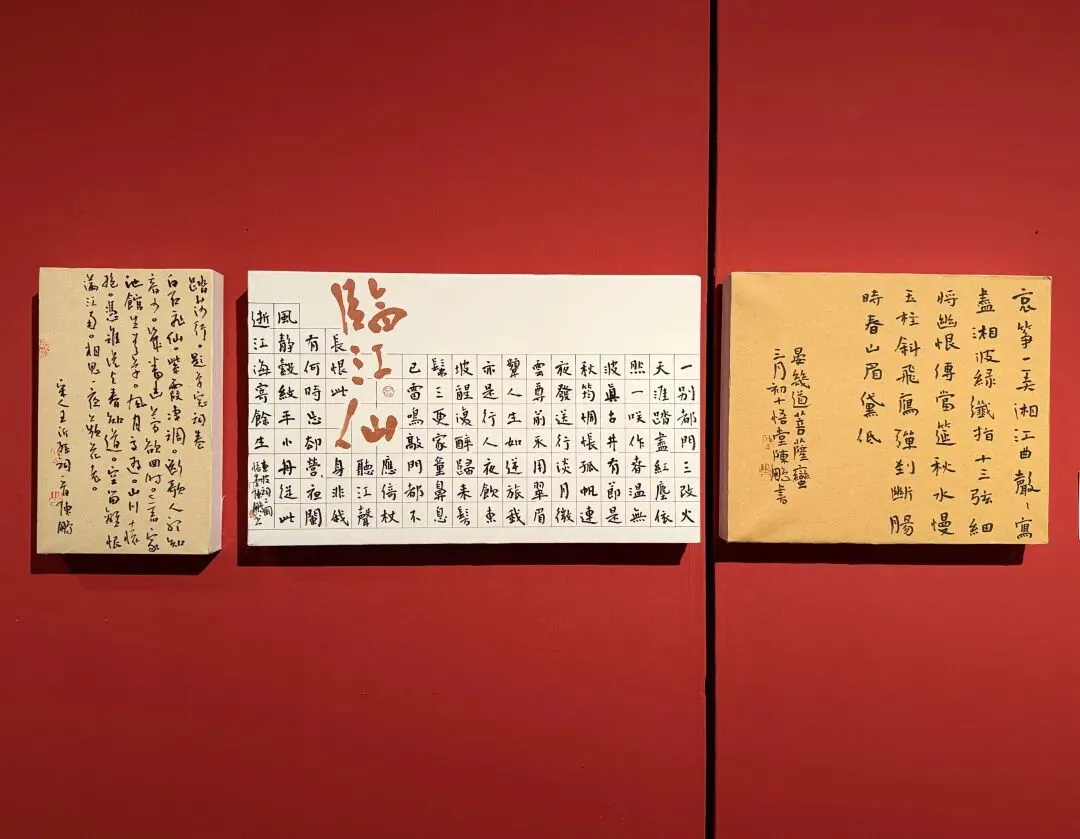 哀箏一弄湘江曲聲〻寫
盡湘波綠纖指十三弦細
將幽恨傳當筵秋水慢
玉柱斜飛鴈彈到斷腸
時春山眉黛低
晏幾道菩薩蠻
三月初十悟堂陳鵬書
一別都門三改火
天涯踏盡紅塵依
然一咲作春温無
波真古井有節是
秋筠惆悵孤帆連
夜發送行淡月微
雲尊前不用翠眉
顰人生如逆旅我
亦是行人夜飲東
坡醒復醉歸來髣
髴三更家童鼻息
已雷鳴敲門都不
臨江仙
應倚杖
聽江聲
長恨此身非我
有何時忘却營〻夜闌
風靜縠紋平小舟從此
逝江海寄餘生
東坡詞二闋
踏莎行。題草窗詞卷
白石飛仙。紫霞淒調。斷歌人聽知
音少。幾番幽夢欲回時。舊家
池館生青草。風月交遊。山川懷
抱。憑誰說與春知道。空留離恨
滿江南。相思一夜蘋花老。
宋人王沂孫詞 陳鵬